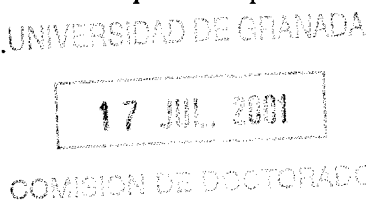 .UNIVERSIDAD DE GRANADA
17 JUL. 2001
COMISION DE DOCTORADO